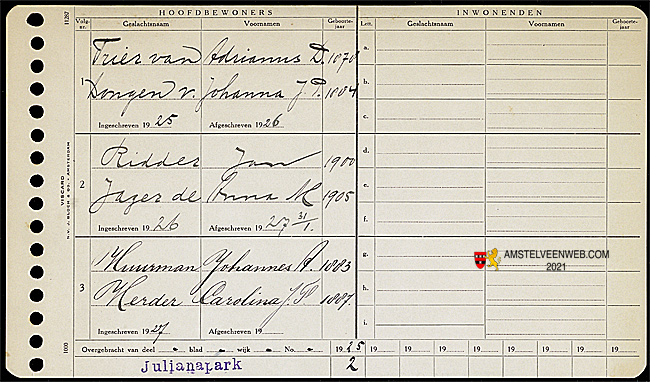 HOOFDBEWONERS INWONENDEN
Volg-nr. Geslachtsnaam Voornamen Geboorte-jaar Lett. Geslachtsnaam Voornamen Geboorte-jaar
11287
Trier van Adrianus D. 1870 a.
1 Dongen v. Johanna J. P. 1884 b.
c.
Ingeschreven 1925 Afgeschreven 1926
Ridder Jan 1900 d.
2 Jager de Anna M 1905 e.
Ingeschreven 1926 Afgeschreven 1927 31/1. f.
VISCARD
N.V. J. BLOEM & CO. - AMSTERDAM
Huurman Johannes A. 1883 g.
3 Herder Carolina J. 1887 h.
i.
Ingeschreven 1927 Afgeschreven 19
AMSTELVEENWEB.COM
2021
1000
Overgebracht van deel blad wijk No. 1925 19 19 19 19 19 19 19 19 19
Julianapark 2